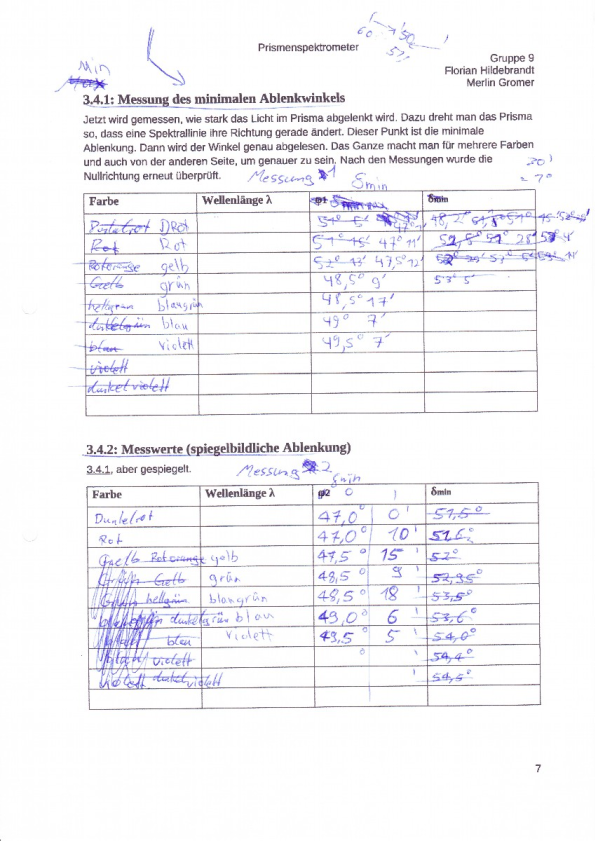 60 50
52
Prismenspektrometer
Gruppe 9
Florian Hildebrandt
Merlin Gromer
Min
Max
3.4.1: Messung des minimalen Ablenkwinkels
Jetzt wird gemessen, wie stark das Licht im Prisma abgelenkt wird. Dazu dreht man das Prisma
so, dass eine Spektrallinie ihre Richtung gerade ändert. Dieser Punkt ist die minimale
Ablenkung. Dann wird der Winkel genau abgelesen. Das Ganze macht man für mehrere Farben
und auch von der anderen Seite, um genauer zu sein. Nach den Messungen wurde die
Nullrichtung erneut überprüft.
Messung 1 δmin
Farbe Wellenlänge λ φ1 δmin
DRot
Rot Rot 51° 15' 47° 11'
Rotorange gelb 52° 13' 47,5° 12'
Gelb grün 48,5° 9' 53° 5'
hellgrün blaugrün 48,5° 17'
dunkelgrün blau 49° 7'
blau violett 49,5° 7'
violett
dunkelviolett
3.4.2: Messwerte (spiegelbildliche Ablenkung)
3.4.1, aber gespiegelt.
Messung 2
δmin
Farbe Wellenlänge λ φ2 ° ' δmin
Dunkelrot 47,0° 0' 51,5°
Rot 47,0° 10' 51,6°
Gelb Rotorange gelb 47,5° 15' 52°
Grün Gelb grün 48,5° 9' 52,95°
hellgrün blaugrün 48,5° 18' 53,5°
dunkelgrün blau 49,0° 6' 53,6°
blau violett 49,5° 5' 54,0°
violett ° ' 54,4°
violett dunkelviolett ' 54,5°
7